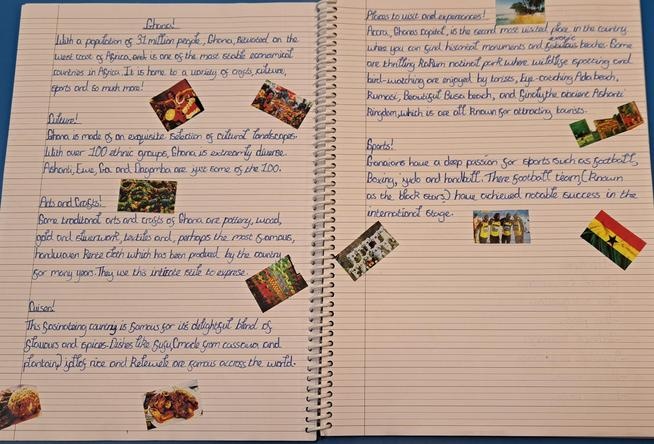 Ghana!
With a population of 31 million people, Ghana, is located on the
west coast of Africa, and is one of the most stable economical
countries in Africa. It is home to a variety of crafts, culture,
sports and so much more!
Culture!
Ghana is made of an exquisite selection of cultural landscapes.
With over 100 ethnic groups, Ghana is extreamly diverse.
Ashanti, Ewe, Ga and Dagomba are just some of the 100.
Arts and Crafts!
Some traditional arts and crafts of Ghana are pottery, wood,
gold and silverwork, textiles and, perhaps the most famous,
handwoven Kente cloth which has been produced by the country
for many years. They use this to
Cuison!
This country is famous for its delightful blend of
flavours and spices. Dishes like fufu (made from cassava and
plantain) jollof rice and Kelewele are famous accross the world.
Places to visit and experiences!
Accra, Ghanas capitol, is the second most visited place in the country
where you can find historical monuments and exotic beaches. Some
are thrilling Kakum national park where wildlife spotting and
bird-watching are enjoyed by torists, eye-catching Ada beach,
Kumasi, Beautiful Busua beach, and the ancient Ashanti
Kingdom, which are all known for attracting tourists.
Sports!
Ganaians have a deep passion for sports such as football,
Boxing, judo and handball. There football team (known
as the black stars) have achieved notable success in the
international stage.